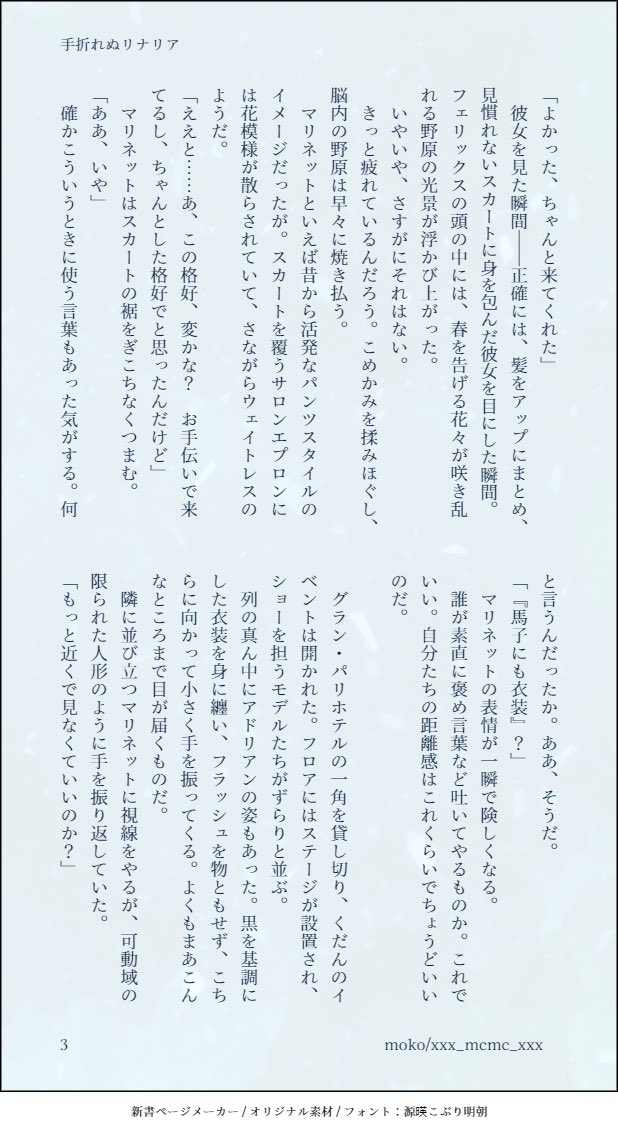 手折れぬリナリア
「よかった、ちゃんと来てくれた」
　彼女を見た瞬間――正確には、髪をアップにまとめ、
見慣れないスカートに身を包んだ彼女を目にした瞬間。
フェリックスの頭の中には、春を告げる花々が咲き乱
れる野原の光景が浮かび上がった。
　いやいや、さすがにそれはない。
　きっと疲れているんだろう。こめかみを揉みほぐし、
脳内の野原は早々に焼き払う。
　マリネットといえば昔から活発なパンツスタイルの
イメージだったが。スカートを覆うサロンエプロンに
は花模様が散らされていて、さながらウェイトレスの
ようだ。
「ええと……あ、この格好、変かな？　お手伝いで来
てるし、ちゃんとした格好でと思ったんだけど」
　マリネットはスカートの裾をぎこちなくつまむ。
「ああ、いや」
　確かこういうときに使う言葉もあった気がする。何
と言うんだったか。ああ、そうだ。
「『馬子にも衣装』？」
　マリネットの表情が一瞬で険しくなる。
　誰が素直に褒め言葉など吐いてやるものか。これで
いい。自分たちの距離感はこれくらいでちょうどいい
のだ。
　グラン・パリホテルの一角を貸し切り、くだんのイ
ベントは開かれた。フロアにはステージが設置され、
ショーを担うモデルたちがずらりと並ぶ。
　列の真ん中にアドリアンの姿もあった。黒を基調に
した衣装を身に纏い、フラッシュを物ともせず、こち
らに向かって小さく手を振ってくる。よくもまあこん
なところまで目が届くものだ。
　隣に並び立つマリネットに視線をやるが、可動域の
限られた人形のように手を振り返していた。
「もっと近くで見なくていいのか？」
3
moko/xxx_mcmc_xxx
新書ページメーカー / オリジナル素材 / フォント：源暎こぶり明朝